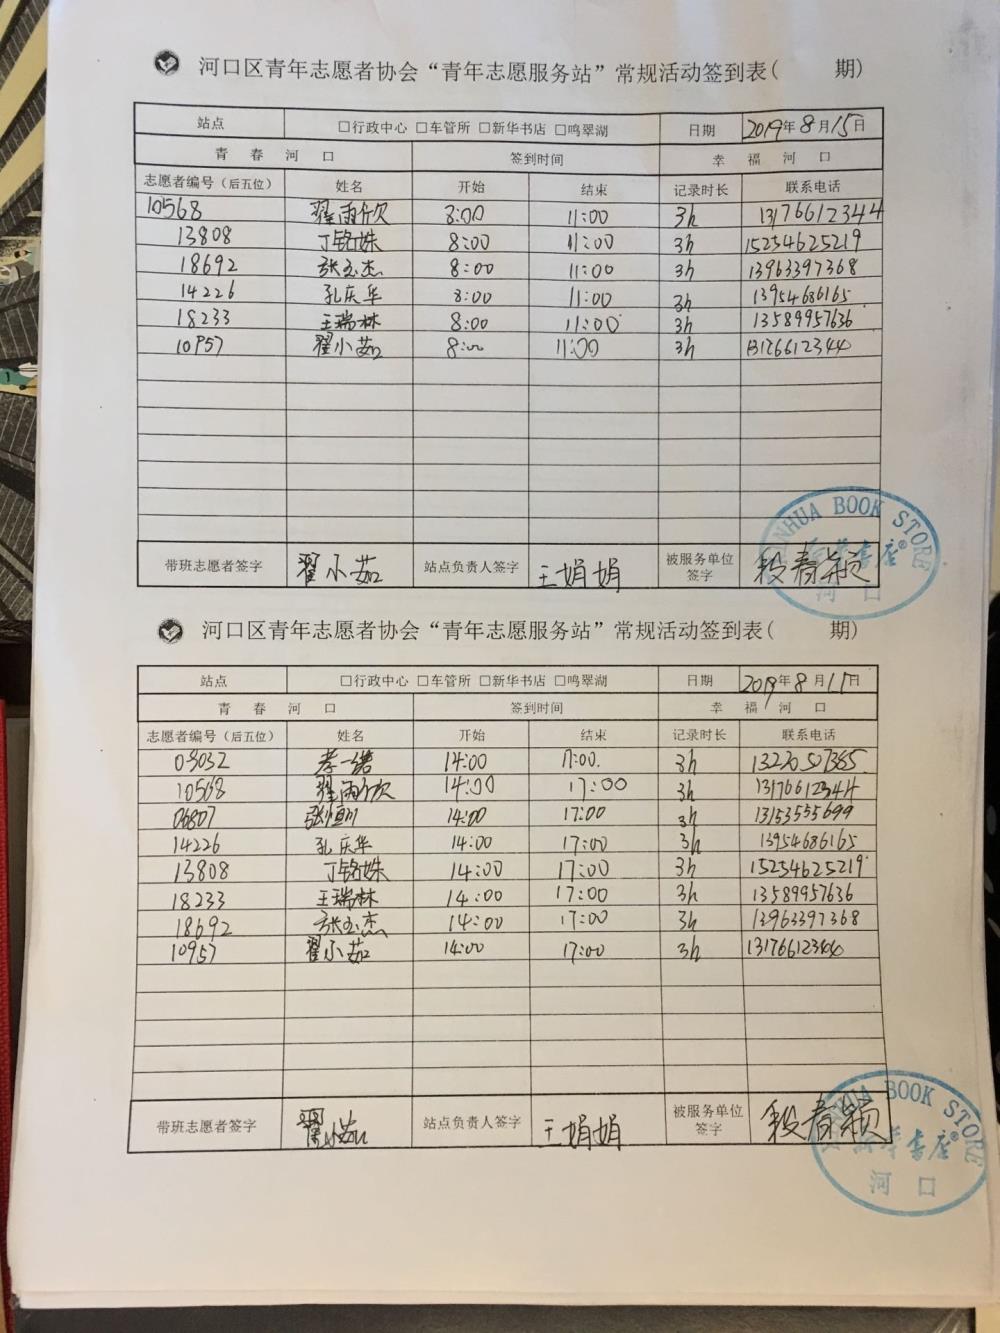 河口区青年志愿者协会“青年志愿服务站”常规活动签到表( 期)
站点 □行政中心 □车管所 □新华书店 □鸣翠湖 日期 2019年8月15日
青春河口 签到时间 幸福河口
志愿者编号(后五位) 姓名 开始 结束 记录时长 联系电话
10568 翟雨欣 8:00 11:00 3h 13176612344
13808 丁铭姝 8:00 11:00 3h 15254625219
18692 张玉杰 8:00 11:00 3h 13963397368
14226 孔庆华 8:00 11:00 3h 13954686165
18233 王瑞林 8:00 11:00 3h 13589957636
10957 翟小茹 8:00 11:00 3h 13176612344
带班志愿者签字 翟小茹 站点负责人签字 王娟娟 被服务单位签字 段春颖
XINHUA BOOK STORE
新华书店®
河口
河口区青年志愿者协会“青年志愿服务站”常规活动签到表( 期)
站点 □行政中心 □车管所 □新华书店 □鸣翠湖 日期 2019年8月17日
青春河口 签到时间 幸福河口
志愿者编号(后五位) 姓名 开始 结束 记录时长 联系电话
03032 14:00 17:00. 3h
10568 翟雨欣 14:00 17:00 3h 13176612344
06807 张恒川 14:00 17:00 3h 13153555699
14226 孔庆华 14:00 17:00 3h 13954686165
13808 丁铭姝 14:00 17:00 3h 15254625219
18233 王瑞林 14:00 17:00 3h 13589957636
18692 张玉杰 14:00 17:00 3h 13963397368
10957 翟小茹 14:00 17:00 3h 13176612344
带班志愿者签字 翟小茹 站点负责人签字 王娟娟 被服务单位签字 段春颖
XINHUA BOOK STORE
新华书店®
河口